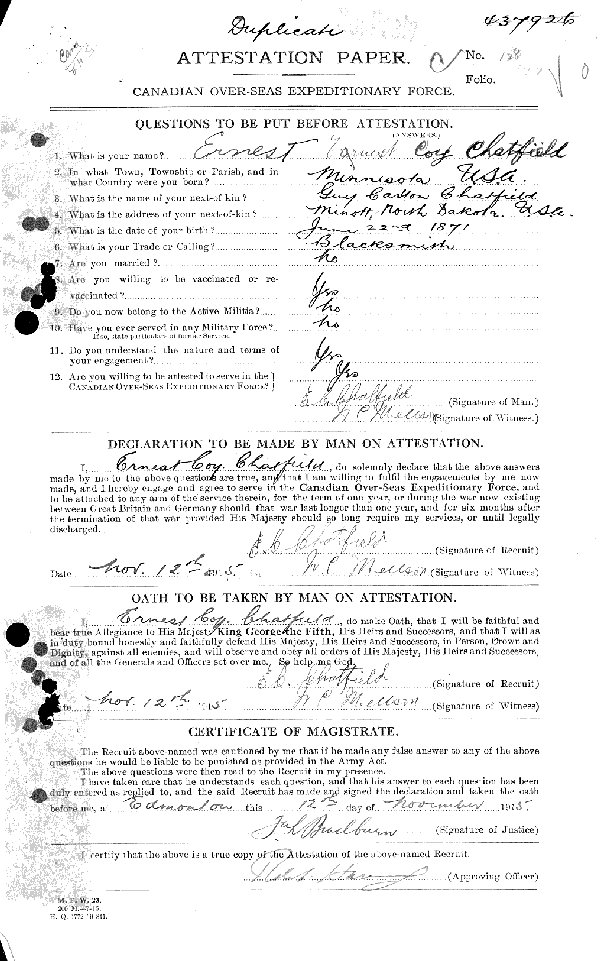 Duplicate
437926
ATTESTATION PAPER.
No.
Folio.
CANADIAN OVER-SEAS EXPEDITIONARY FORCE.
QUESTIONS TO BE PUT BEFORE ATTESTATION.
(ANSWERS.)
1. What is your name? Ernest Coy Chatfield
2. In what Town, Township or Parish, and in what Country were you born? Minnesota USA.
3. What is the name of your next-of-kin? Guy Carlton Chatfield
4. What is the address of your next-of-kin? Minott, North Dakota. USA.
5. What is the date of your birth? June 22nd 1871
6. What is your Trade or Calling? Blacksmith
7. Are you married? no
8. Are you willing to be vaccinated or re-
vaccinated? Yes
9. Do you now belong to the Active Militia? no
10. Have you ever served in any Military Force? no
If so, state particulars of former Service.
11. Do you understand the nature and terms of
your engagement? Yes
12. Are you willing to be attested to serve in the
CANADIAN OVER-SEAS EXPEDITIONARY FORCE? Yes
E C Chatfield (Signature of Man.)
N C Mellson (Signature of Witness.)
DECLARATION TO BE MADE BY MAN ON ATTESTATION.
I, Ernest Coy Chatfield, do solemnly declare that the above answers
made by me to the above questions are true, and that I am willing to fulfil the engagements by me now
made, and I hereby engage and agree to serve in the Canadian Over-Seas Expeditionary Force, and
to be attached to any arm of the service therein, for the term of one year, or during the war now existing
between Great Britain and Germany should that war last longer than one year, and for six months after
the termination of that war provided His Majesty should so long require my services, or until legally
discharged.
E C Chatfield (Signature of Recruit)
Date Nov. 12th 1915. N C Mellson (Signature of Witness)
OATH TO BE TAKEN BY MAN ON ATTESTATION.
I, Ernest Coy Chatfield, do make Oath, that I will be faithful and
bear true Allegiance to His Majesty King George the Fifth, His Heirs and Successors, and that I will as
in duty bound honestly and faithfully defend His Majesty, His Heirs and Successors, in Person, Crown and
Dignity, against all enemies, and will observe and obey all orders of His Majesty, His Heirs and Successors,
and of all the Generals and Officers set over me. So help me God.
E C Chatfield (Signature of Recruit)
Date Nov. 12th 1915 N C Mellson (Signature of Witness)
CERTIFICATE OF MAGISTRATE.
The Recruit above-named was cautioned by me that if he made any false answer to any of the above
questions he would be liable to be punished as provided in the Army Act.
The above questions were then read to the Recruit in my presence.
I have taken care that he understands each question, and that his answer to each question has been
duly entered as replied to, and the said Recruit has made and signed the declaration and taken the oath
before me, at Edmonton this 12th day of November 1915
Bradburn (Signature of Justice)
I certify that the above is a true copy of the Attestation of the above-named Recruit.
(Approving Officer)
M. F. W. 23.
200 M.-7-15.
H. Q. 1772-39-841.